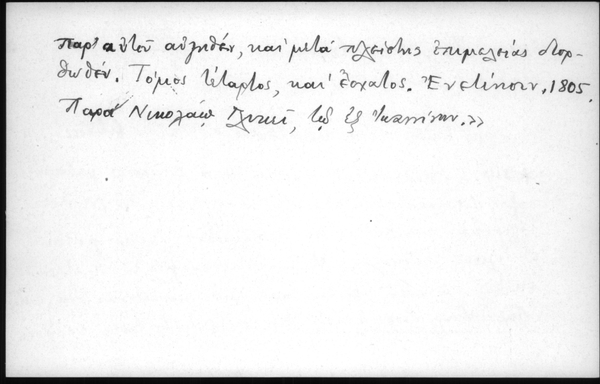 παρ' αὐτοῦ αὐξηθέν, καὶ μετὰ πλείστης ἐπιμελείας διορ-
θωθέν. Τόμος τέταρτος, καὶ ἔσχατος. Ἐνετίησιν. 1805.
Παρὰ Νικολάῳ Γλυκεῖ, τῷ ἐξ Ἰωαννίνων.»